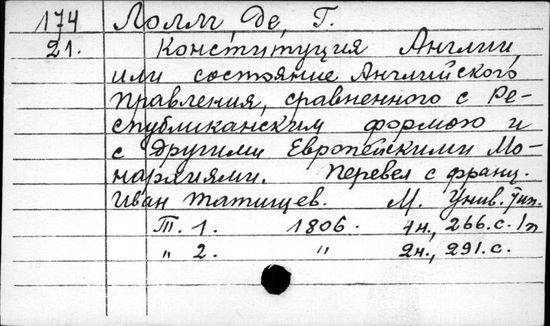 174 Лоллм де, Г.
21. Конституция Англии,
или состояние Английского
Правления, сравненного с Ре-
спубликанским формою и
с другими Европейскими Мо-
нархиями. Перевел с франц.
Иван Татищев. М. Унив. тип.
Т. 1. 1806. 266.с.
„ 2. „ 2н., 291.с.